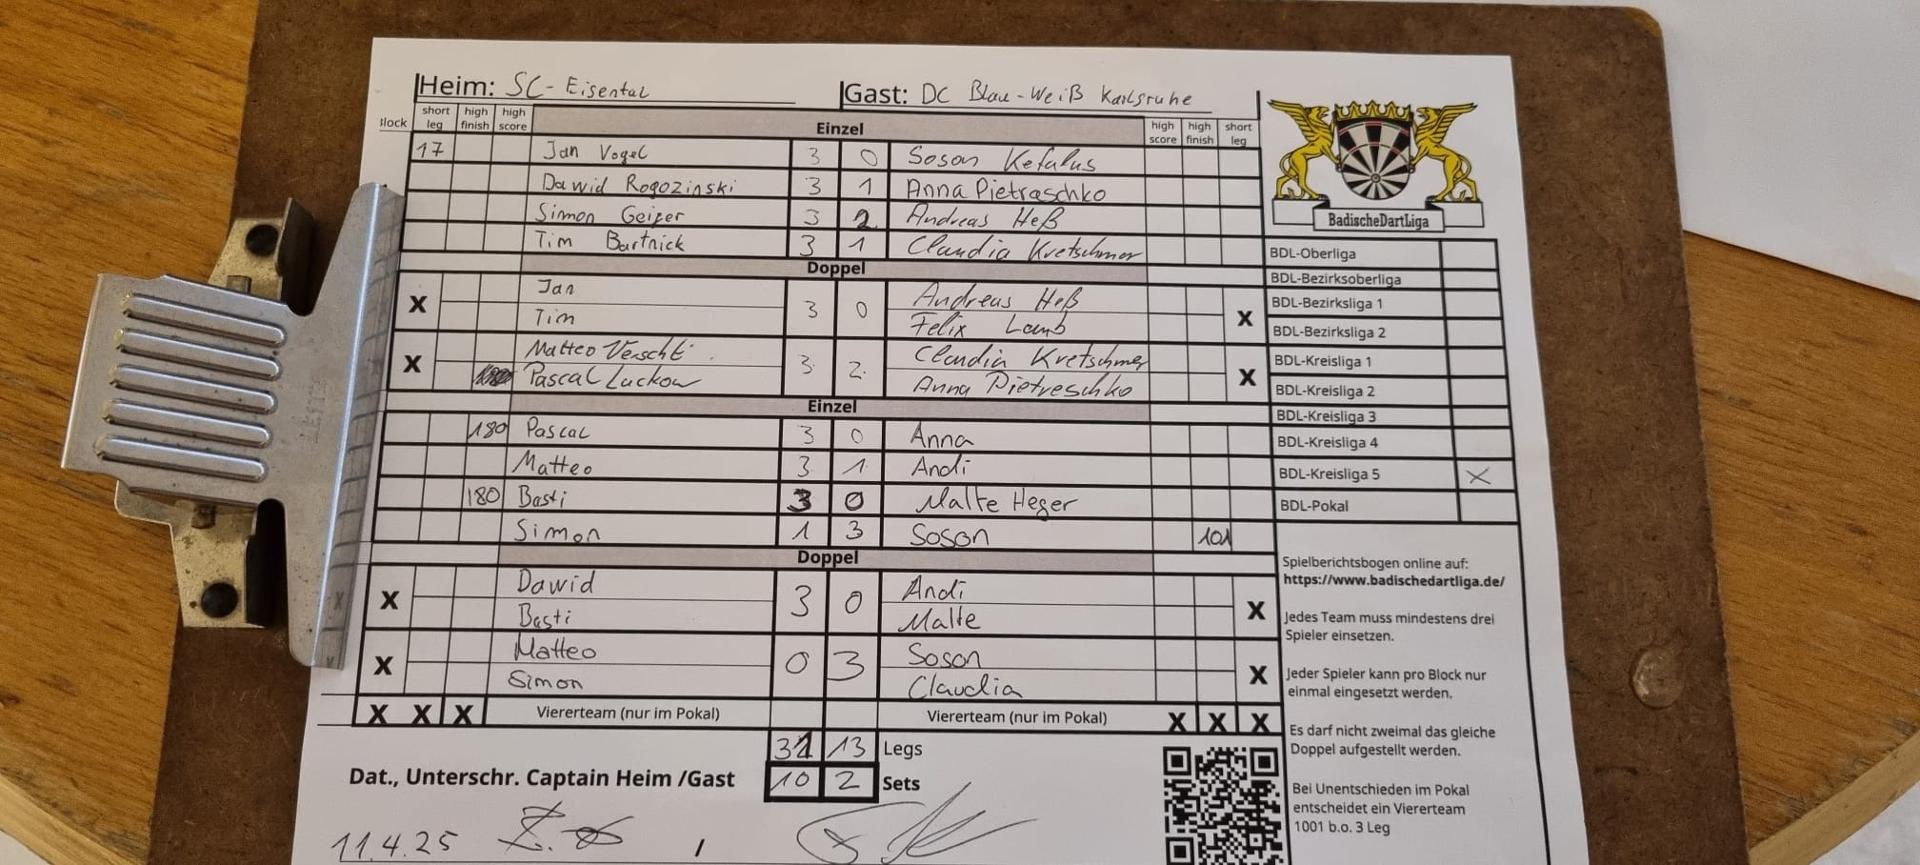 Heim: SC-Eisental Gast: DC Blau-Weiß Karlsruhe
lock short leg high finish high score Einzel high score high finish short leg
17 Jan Vogel 3 0 Soson Kefalus
Dawid Rogozinski 3 1 Anna Pietraschko
Simon Geiger 3 2 Andreas Heß
Tim Bartnick 3 1 Claudia Kretschmer
Doppel
Jan 3 0 Andreas Heß
X X
Tim Felix Lamb
Matteo Verschti 3 2 Claudia Kretschmer
X X
Pascal Luckow Anna Pietreschko
Einzel
180 Pascal 3 0 Anna
Matteo 3 1 Andi
180 Basti 3 0 Malte Heger
Simon 1 3 Soson 101
Doppel
Dawid 3 0 Andi
X X
Basti Malte
Matteo 0 3 Soson
X X
Simon Claudia
X X X Viererteam (nur im Pokal) Viererteam (nur im Pokal) X X X
31 13 Legs
Dat., Unterschr. Captain Heim /Gast 10 2 Sets
11.4.25 /
BadischeDartLiga
BDL-Oberliga
BDL-Bezirksoberliga
BDL-Bezirksliga 1
BDL-Bezirksliga 2
BDL-Kreisliga 1
BDL-Kreisliga 2
BDL-Kreisliga 3
BDL-Kreisliga 4
BDL-Kreisliga 5 X
BDL-Pokal
Spielberichtsbogen online auf:
https://www.badischedartliga.de/
Jedes Team muss mindestens drei
Spieler einsetzen.
Jeder Spieler kann pro Block nur
einmal eingesetzt werden.
Es darf nicht zweimal das gleiche
Doppel aufgestellt werden.
Bei Unentschieden im Pokal
entscheidet ein Viererteam
1001 b.o. 3 Leg